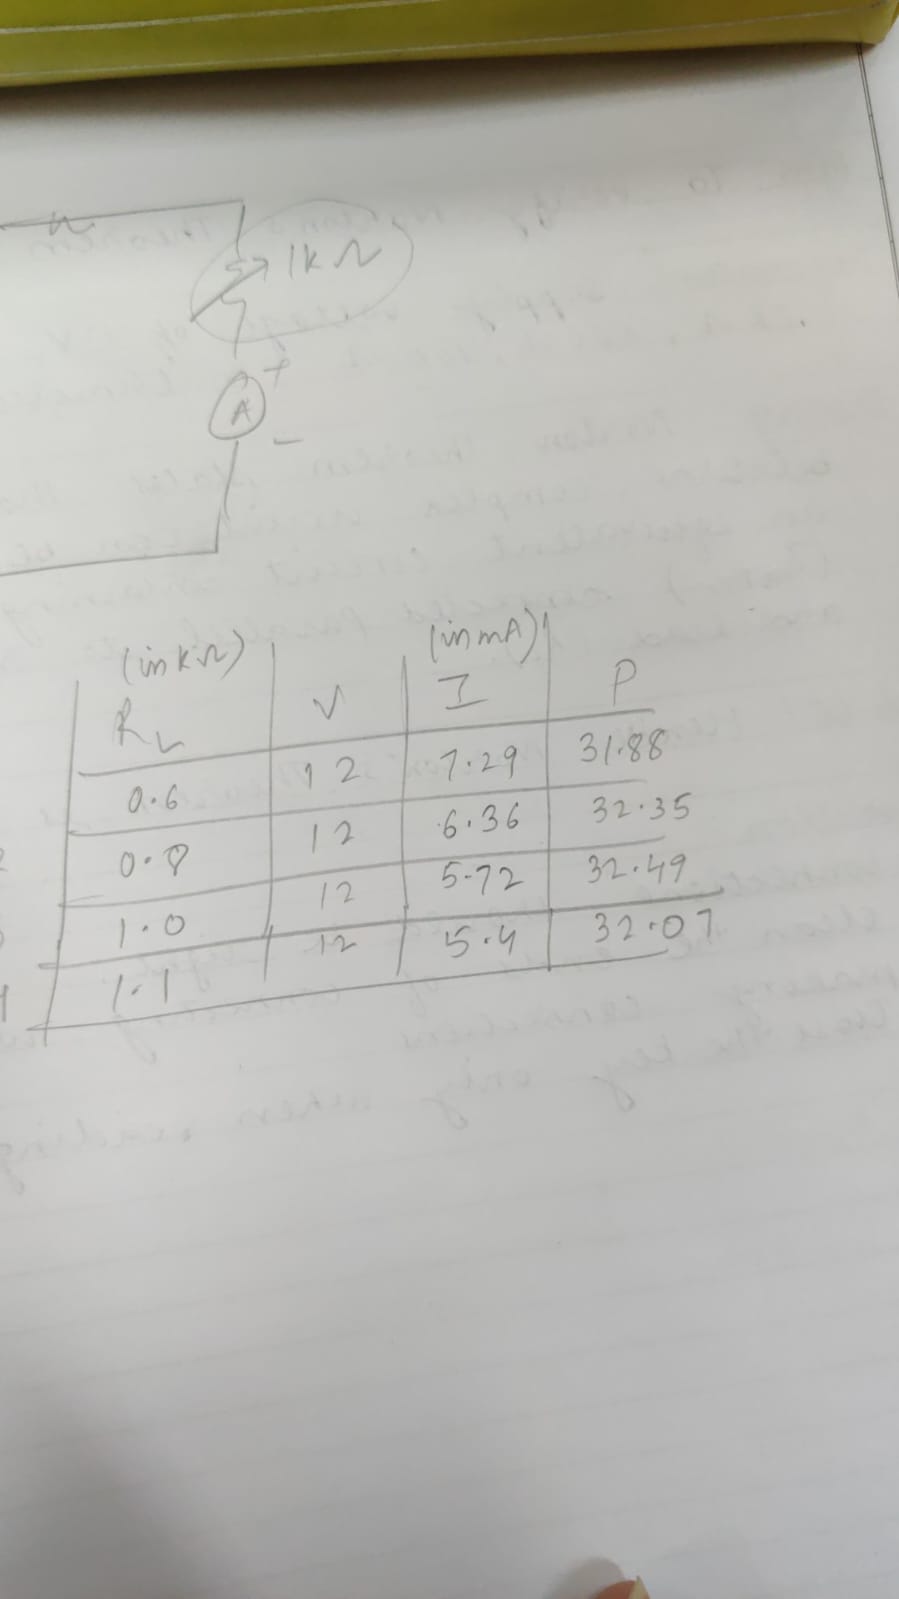 1kΩ
+
A
-
(in kΩ) (in mA)
RL V I P
0.6 12 7.29 31.88
0.8 12 6.36 32.35
1.0 12 5.72 32.49
1.1 12 5.4 32.07